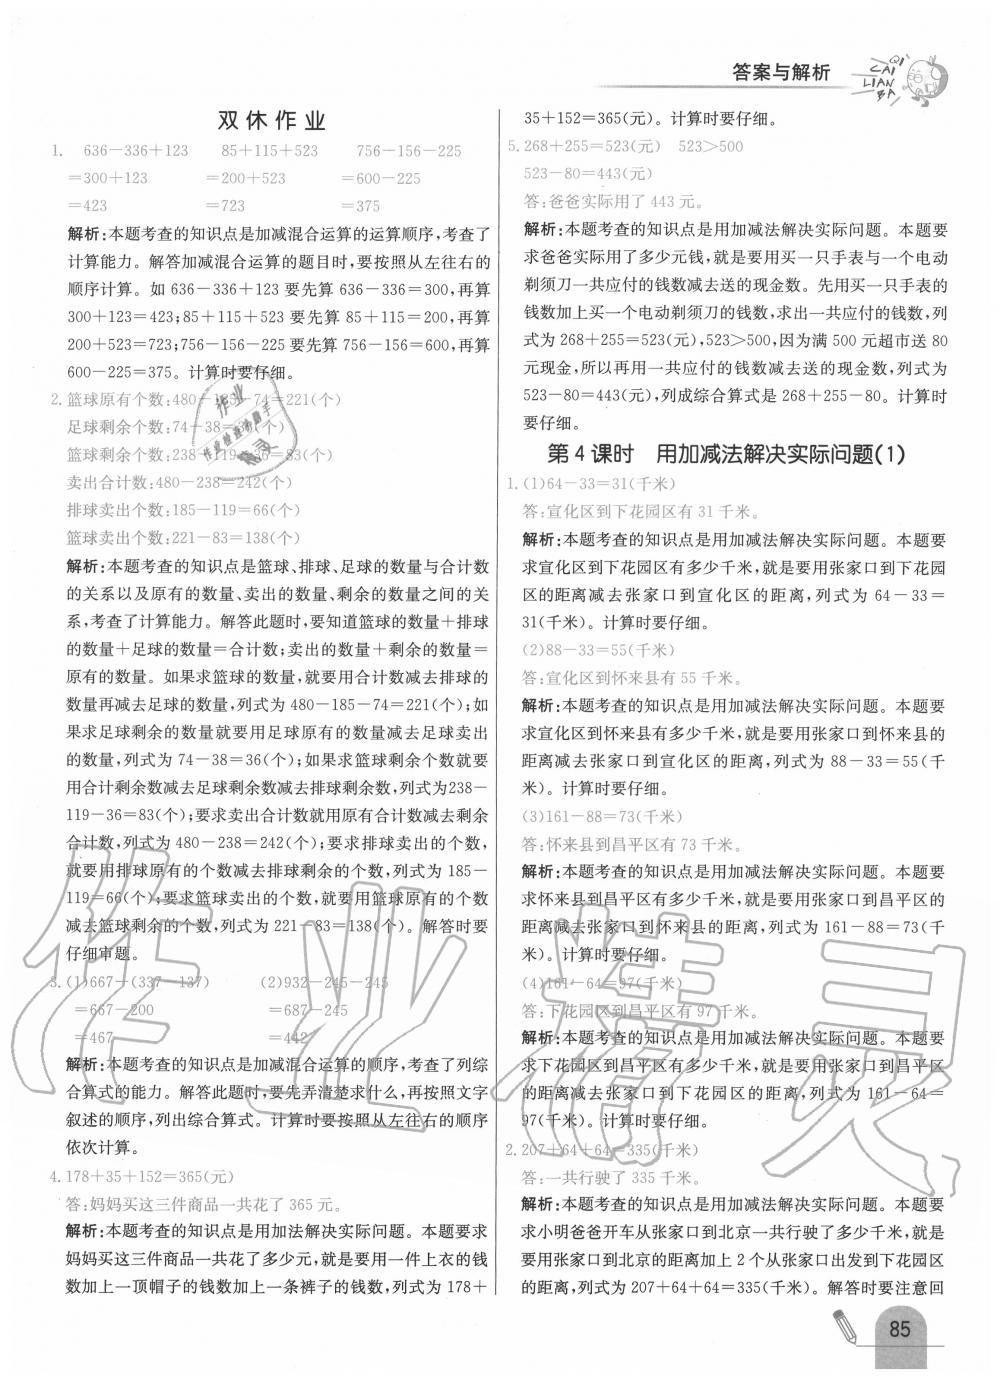 答案与解析
QI CAI LIAN BA
双休作业
1. 636-336+123 85+115+523 756-156-225
=300+123 =200+523 =600-225
=423 =723 =375
解析:本题考查的知识点是加减混合运算的运算顺序,考查了
计算能力。解答加减混合运算的题目时,要按照从左往右的
顺序计算。如 636-336+123 要先算 636-336=300,再算
300+123=423;85+115+523 要先算 85+115=200,再算
200+523=723;756-156-225 要先算 756-156=600,再算
600-225=375。计算时要仔细。
2. 篮球原有个数:480-185-74=221(个)
足球剩余个数:74-38=36(个)
篮球剩余个数:238-119-36=83(个)
卖出合计数:480-238=242(个)
排球卖出个数:185-119=66(个)
篮球卖出个数:221-83=138(个)
解析:本题考查的知识点是篮球、排球、足球的数量与合计数
的关系以及原有的数量、卖出的数量、剩余的数量之间的关
系,考查了计算能力。解答此题时,要知道篮球的数量+排球
的数量+足球的数量=合计数;卖出的数量+剩余的数量=
原有的数量。如果求篮球的数量,就要用合计数减去排球的
数量再减去足球的数量,列式为 480-185-74=221(个);如
果求足球剩余的数量就要用足球原有的数量减去足球卖出
的数量,列式为 74-38=36(个);如果求篮球剩余个数就要
用合计剩余数减去足球剩余数减去排球剩余数,列式为238-
119-36=83(个);要求卖出合计数就用原有合计数减去剩余
合计数,列式为 480-238=242(个);要求排球卖出的个数,
就要用排球原有的个数减去排球剩余的个数,列式为 185-
119=66(个);要求篮球卖出的个数,就要用篮球原有的个数
减去篮球剩余的个数,列式为 221-83=138(个)。解答时要
仔细审题。
3. (1)667-(337-137) (2)932-245-245
=667-200 =687-245
=467 =442
解析:本题考查的知识点是加减混合运算的顺序,考查了列综
合算式的能力。解答此题时,要先弄清楚求什么,再按照文字
叙述的顺序,列出综合算式。计算时要按照从左往右的顺序
依次计算。
4. 178+35+152=365(元)
答:妈妈买这三件商品一共花了 365 元。
解析:本题考查的知识点是用加法解决实际问题。本题要求
妈妈买这三件商品一共花了多少元,就是要用一件上衣的钱
数加上一顶帽子的钱数加上一条裤子的钱数,列式为 178+
35+152=365(元)。计算时要仔细。
5. 268+255=523(元) 523>500
523-80=443(元)
答:爸爸实际用了 443 元。
解析:本题考查的知识点是用加减法解决实际问题。本题要
求爸爸实际用了多少元钱,就是要用买一只手表与一个电动
剃须刀一共应付的钱数减去送的现金数。先用买一只手表的
钱数加上买一个电动剃须刀的钱数,求出一共应付的钱数,列
式为 268+255=523(元),523>500,因为满 500 元超市送 80
元现金,所以再用一共应付的钱数减去送的现金数,列式为
523-80=443(元),列成综合算式是 268+255-80。计算时
要仔细。
第 4 课时 用加减法解决实际问题(1)
1. (1)64-33=31(千米)
答:宣化区到下花园区有 31 千米。
解析:本题考查的知识点是用加减法解决实际问题。本题要
求宣化区到下花园区有多少千米,就是要用张家口到下花园
区的距离减去张家口到宣化区的距离,列式为 64-33=
31(千米)。计算时要仔细。
(2)88-33=55(千米)
答:宣化区到怀来县有 55 千米。
解析:本题考查的知识点是用加减法解决实际问题。本题要
求宣化区到怀来县有多少千米,就是要用张家口到怀来县的
距离减去张家口到宣化区的距离,列式为 88-33=55(千
米)。计算时要仔细。
(3)161-88=73(千米)
答:怀来县到昌平区有 73 千米。
解析:本题考查的知识点是用加减法解决实际问题。本题要
求怀来县到昌平区有多少千米,就是要用张家口到昌平区的
距离减去张家口到怀来县的距离,列式为 161-88=73(千
米)。计算时要仔细。
(4)161-64=97(千米)
答:下花园区到昌平区有 97 千米。
解析:本题考查的知识点是用加减法解决实际问题。本题要
求下花园区到昌平区有多少千米,就是要用张家口到昌平区
的距离减去张家口到下花园区的距离,列式为 161-64=
97(千米)。计算时要仔细。
2. 207+64+64=335(千米)
答:一共行驶了 335 千米。
解析:本题考查的知识点是用加减法解决实际问题。本题要
求小明爸爸开车从张家口到北京一共行驶了多少千米,就是
要用张家口到北京的距离加上 2 个从张家口出发到下花园区
的距离,列式为 207+64+64=335(千米)。解答时要注意回
85
作业精灵